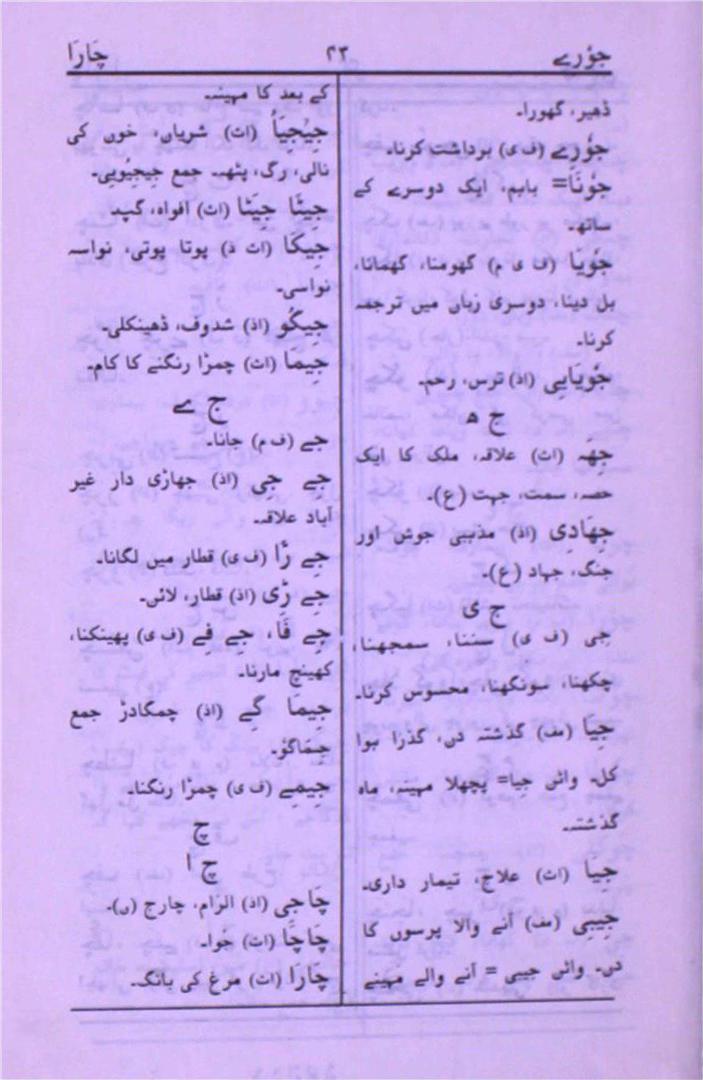 جوٗرے ۲۳ چَارَا
ڈھیر، گھورا۔
جوٗرِے (ف ی) برداشت کرنا۔
جوٗنَا= باہم، ایک دوسرے کے
ساتھ۔
جَوْیَا (ف ی م) گھومنا، گھمانا،
بل دینا، دوسری زبان میں ترجمہ
کرنا۔
جَوْیَایِی (اذ) ترس، رحم۔
ج ھ
جِھَہ (اث) علاقہ، ملک کا ایک
حصہ، سمت، جہت (ع)۔
جِھَادِی (اذ) مذہبی جوش اور
جنگ، جہاد (ع)۔
ج ی
جِی (ف ی) سننا، سمجھنا،
چکھنا، سونگھنا، محسوس کرنا۔
جِیَا (مف) گذشتہ دن، گذرا ہوا
کل۔ وائی جِیا= پچھلا مہینہ، ماہ
گذشتہ۔
جِیَا (اث) علاج، تیمار داری۔
جِیبِی (مف) آنے والا پرسوں کا
دن۔ وائی جیبی = آنے والے مہینے
کے بعد کا مہینہ۔
جِیْجِیَاُ (اث) شریان، خون کی
نالی، رگ، پٹھہ۔ جمع جِیجِیُویِی۔
جِیتَا جِیتَا (اث) افواہ، گپ۔
جِیکَا (اث ذ) پوتا پوتی، نواسہ
نواسی۔
جِیکُو (اذ) شدوف، ڈھینکلی۔
جِیمَا (اث) چمڑا رنگنے کا کام۔
ج ے
جے (ف م) جانا۔
جے جِی (اذ) جھاڑی دار غیر
آباد علاقہ۔
جِے رَّا (ف ی) قطار میں لگانا۔
جِے رِّی (اذ) قطار، لائن۔
جِے فَا، جِے فِے (ف ی) پھینکنا،
کھینچ مارنا۔
جِیمَا گِے (اذ) چمگادڑ جمع
جِمَاگوٗ۔
جِیمِے (ف ی) چمڑا رنگنا۔
چ
چ ا
چَاجِی (اذ) الزام، چارج (ن)۔
چَاچَا (اث) جوا۔
چَارَا (اث) مرغ کی بانگ۔